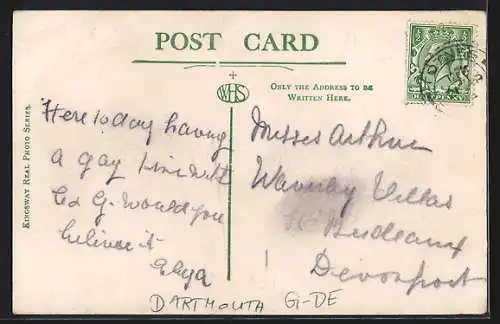 POST CARD
WHS
ONLY THE ADDRESS TO BE
WRITTEN HERE.
KINGSWAY REAL PHOTO SERIES.
Here to day having
a gay time with
G. Would you
believe it
Elya
Misses Arthur
Waverley Villas
St Budeaux
Devonport
DARTMOUTH G-DE